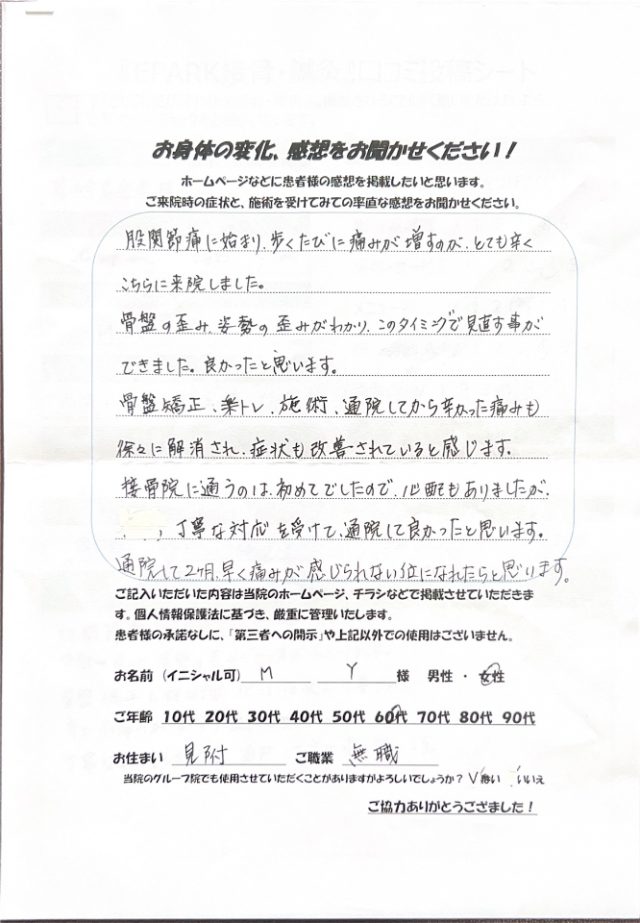 お身体の変化、感想をお聞かせください！
ホームページなどに患者様の感想を掲載したいと思います。
ご来院時の症状と、施術を受けてみての率直な感想をお聞かせください。
股関節痛に始まり、歩くたびに痛みが増すのが、とても辛く
こちらに来院しました。
骨盤の歪み、姿勢の歪みがわかり、このタイミングで見直す事が
できました。良かったと思います。
骨盤矯正、楽トレ、施術、通院してから辛かった痛みも
徐々に解消され、症状も改善されていると感じます。
接骨院に通うのは、初めてでしたので、心配もありましたが、
丁寧な対応を受けて、通院して良かったと思います。
通院して2ヶ月、早く痛みが感じられない位になれたらと思います。
ご記入いただいた内容は当院のホームページ、チラシなどで掲載させていただきま
す。個人情報保護法に基づき、厳重に管理いたします。
患者様の承諾なしに、「第三者への開示」や上記以外での使用はございません。
お名前（イニシャル可） M Y 様 男性 ・ 女性
ご年齢 10代 20代 30代 40代 50代 60代 70代 80代 90代
お住まい 見附 ご職業 無職
当院のグループ院でも使用させていただくことがありますがよろしいでしょうか？ はい いいえ
ご協力ありがとうござました！